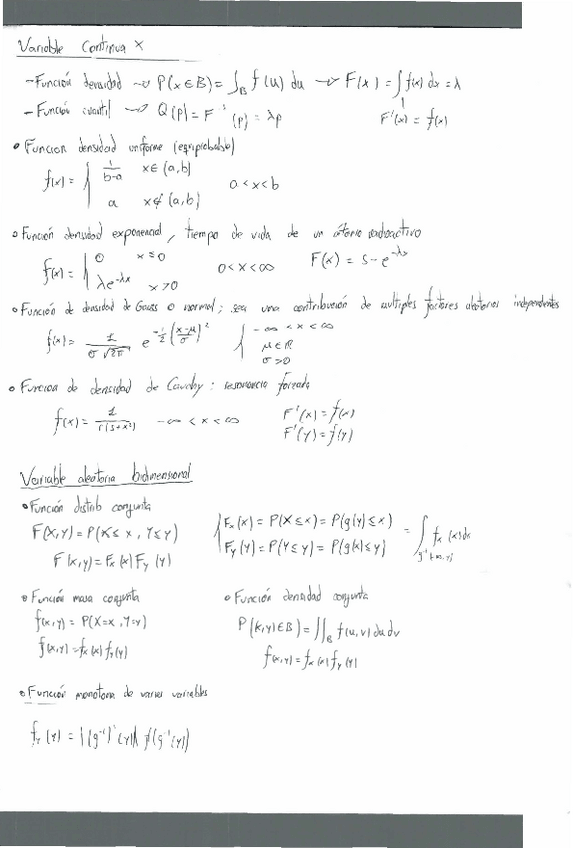 Variable Continua X
- Función densidad ⇝ P(x∈B) = ∫_B f(u) du ⇝ F(x) = ∫ f(x) dx = λ
- Función cuantil ⇝ Q(p) = F⁻¹(p) = λp F'(x) = f(x)
• Funcion densidad uniforme (equiprobable)
f(x) = { 1/(b-a) x∈(a,b)
a x∉(a,b) a<x<b
• Función densidad exponencial, tiempo de vida de un átomo radioactivo
f(x) = { 0 x≤0
λe^(-λx) x>0 0<x<∞ F(x) = 1-e^(-λx)
• Función de densidad de Gauss o normal; sea una contribución de multiples factores aleatorios independientes
f(x) = 1/(σ√2π) e^(-1/2((x-μ)/σ)²) { -∞<x<∞
μ∈R
σ>0
• Funcion de densidad de Cauchy: resonancia forzada
f(x) = 1/(π(1+x²)) -∞<x<∞ F'(x) = f(x)
F'(y) = f(y)
Variable aleatoria bidimensional
• Función distrib conjunta
F(X,Y) = P(X≤x, Y≤y) { F_x(x) = P(X≤x) = P(g(y)≤x)
F(x,y) = F_x(x) F_y(y) F_y(y) = P(Y≤y) = P(g(x)≤y) = ∫ f_x(x)dx
• Función masa conjunta
f(x,y) = P(X=x, Y=y)
f(x,y) = f_x(x) f_y(y)
• Función densidad conjunta
P(x,y)∈B) = ∬_B f(u,v) du dv
f(x,y) = f_x(x) f_y(y)
• Función monótona de varias variables
f_Y(y) = |(g⁻¹)'(y)| f(g⁻¹(y))